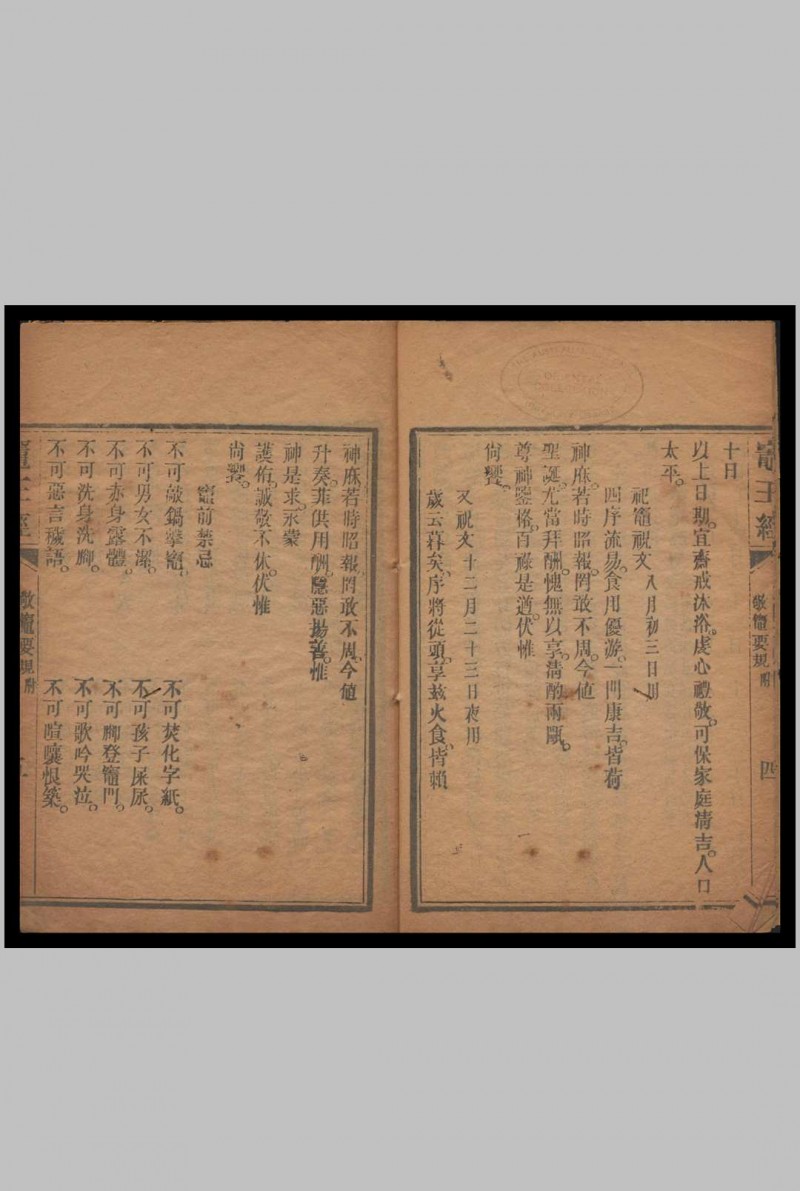 竈王經 敬竈要規附 四
十日
以上日期。宜齋戒沐浴。虔心禮敬。可保家庭清吉。人口
太平。
祀竈祝文 八月初三日用
四序流易。食用優游。一門康吉。皆荷
神庥。若時昭報。罔敢不周。今值
聖誕。尤當拜酬。愧無以享。清酌兩甌。
尊神鑒格。百祿是遒。伏惟
尚饗。
又祝文 十二月二十三日夜用
歲云暮矣。序將從頭。享茲火食。皆賴
神庥。若時昭報。罔敢不周。今値
升奏。菲供用酬。隱惡揚善。惟
神是求。永蒙
護佑。誠敬不休。伏惟
尚饗。
竈前禁忌
不可敲鍋擊竈。 不可焚化字紙。
不可男女不潔。 不可孩子屎尿。
不可赤身露體。 不可腳登竈門。
不可洗身洗腳。 不可歌吟哭泣。
不可惡言穢語。 不可喧嚷恨築。
竈王經 敬竈要規附